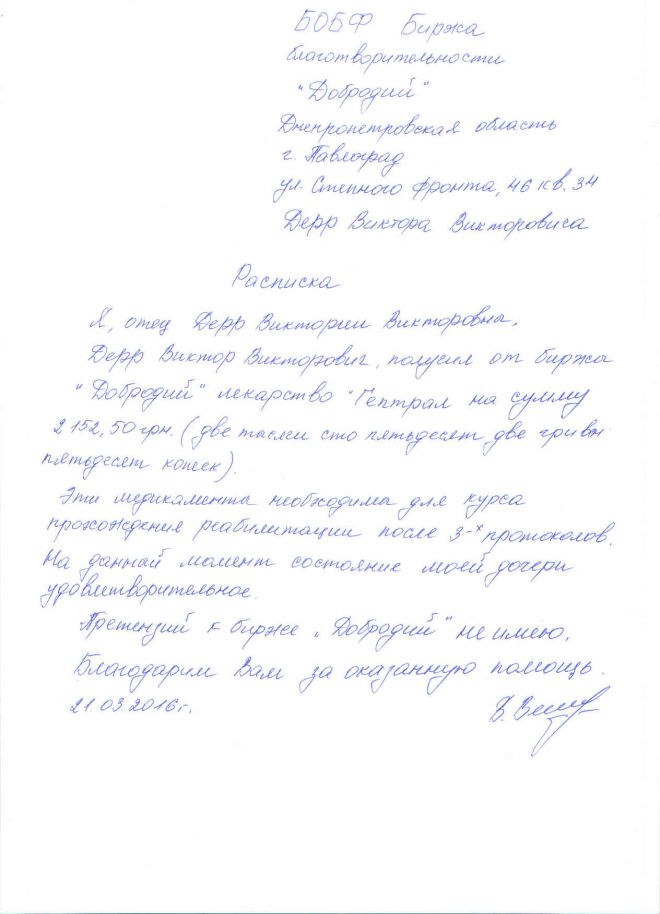 БОБФ Биржа
благотворительности
"Добродий"
Днепропетровская область
г. Павлоград
ул. Степного фронта, 46 кв. 34
Дерр Виктора Викторовиса
Расписка
Я, отец Дерр Виктории Викторовны,
Дерр Виктор Викторович, полусил от биржа
"Добродий" лекарство "Гептрал на сумму
2 152,50 грн. (две тысеи сто пятьдесят две гривн
пятьдесят копеек).
Эти медикаменты необходимы для курса
прохождения реабилитации после 3-х протоколов.
На данный момент состояние моей дочери
удовлетворительное.
Претензий к бирже „Добродий" не имею.
Благодарим Вам за оказанную помощь.
21.03.2016г.